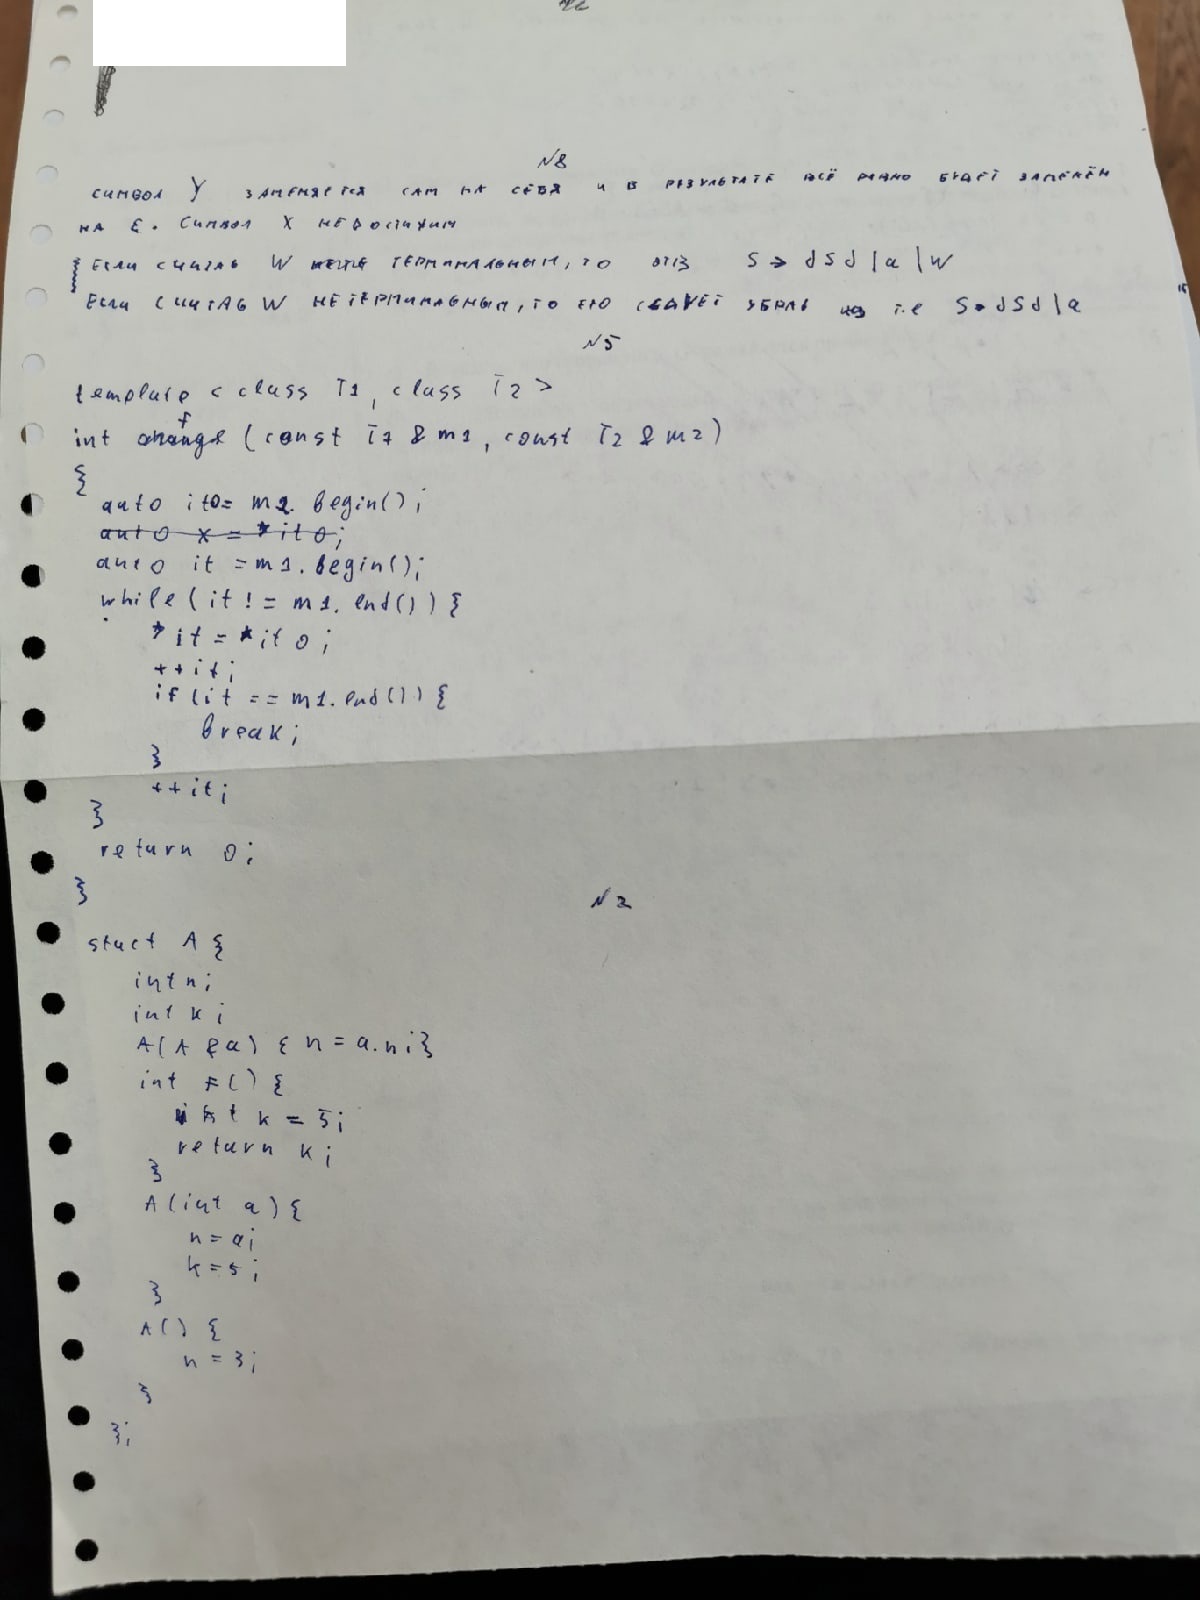 N8
символ Y заменяется сам на себя и в результате всё равно будет заменён
на ε. Символ X недостижим
Если считать W терминальным, то отв S → dSd | a | W
Если считать W нетерминальным, то его следует убрать т.е S → dSd | a
N5
template < class T1, class T2 >
int change (const T1 & m1, const T2 & m2)
{
auto it0= m2. begin();
auto x = *it0;
auto it = m1. begin();
while (it != m1. end()) {
*it = *it0;
++it;
if (it == m1. end()) {
break;
}
++it;
}
return 0;
}
N2
stuct A {
int n;
int k;
A(A &a) { n = a.n;}
int F() {
int k = 5;
return k;
}
A(int a) {
n = a;
k = 5;
}
A() {
n = 3;
}
};